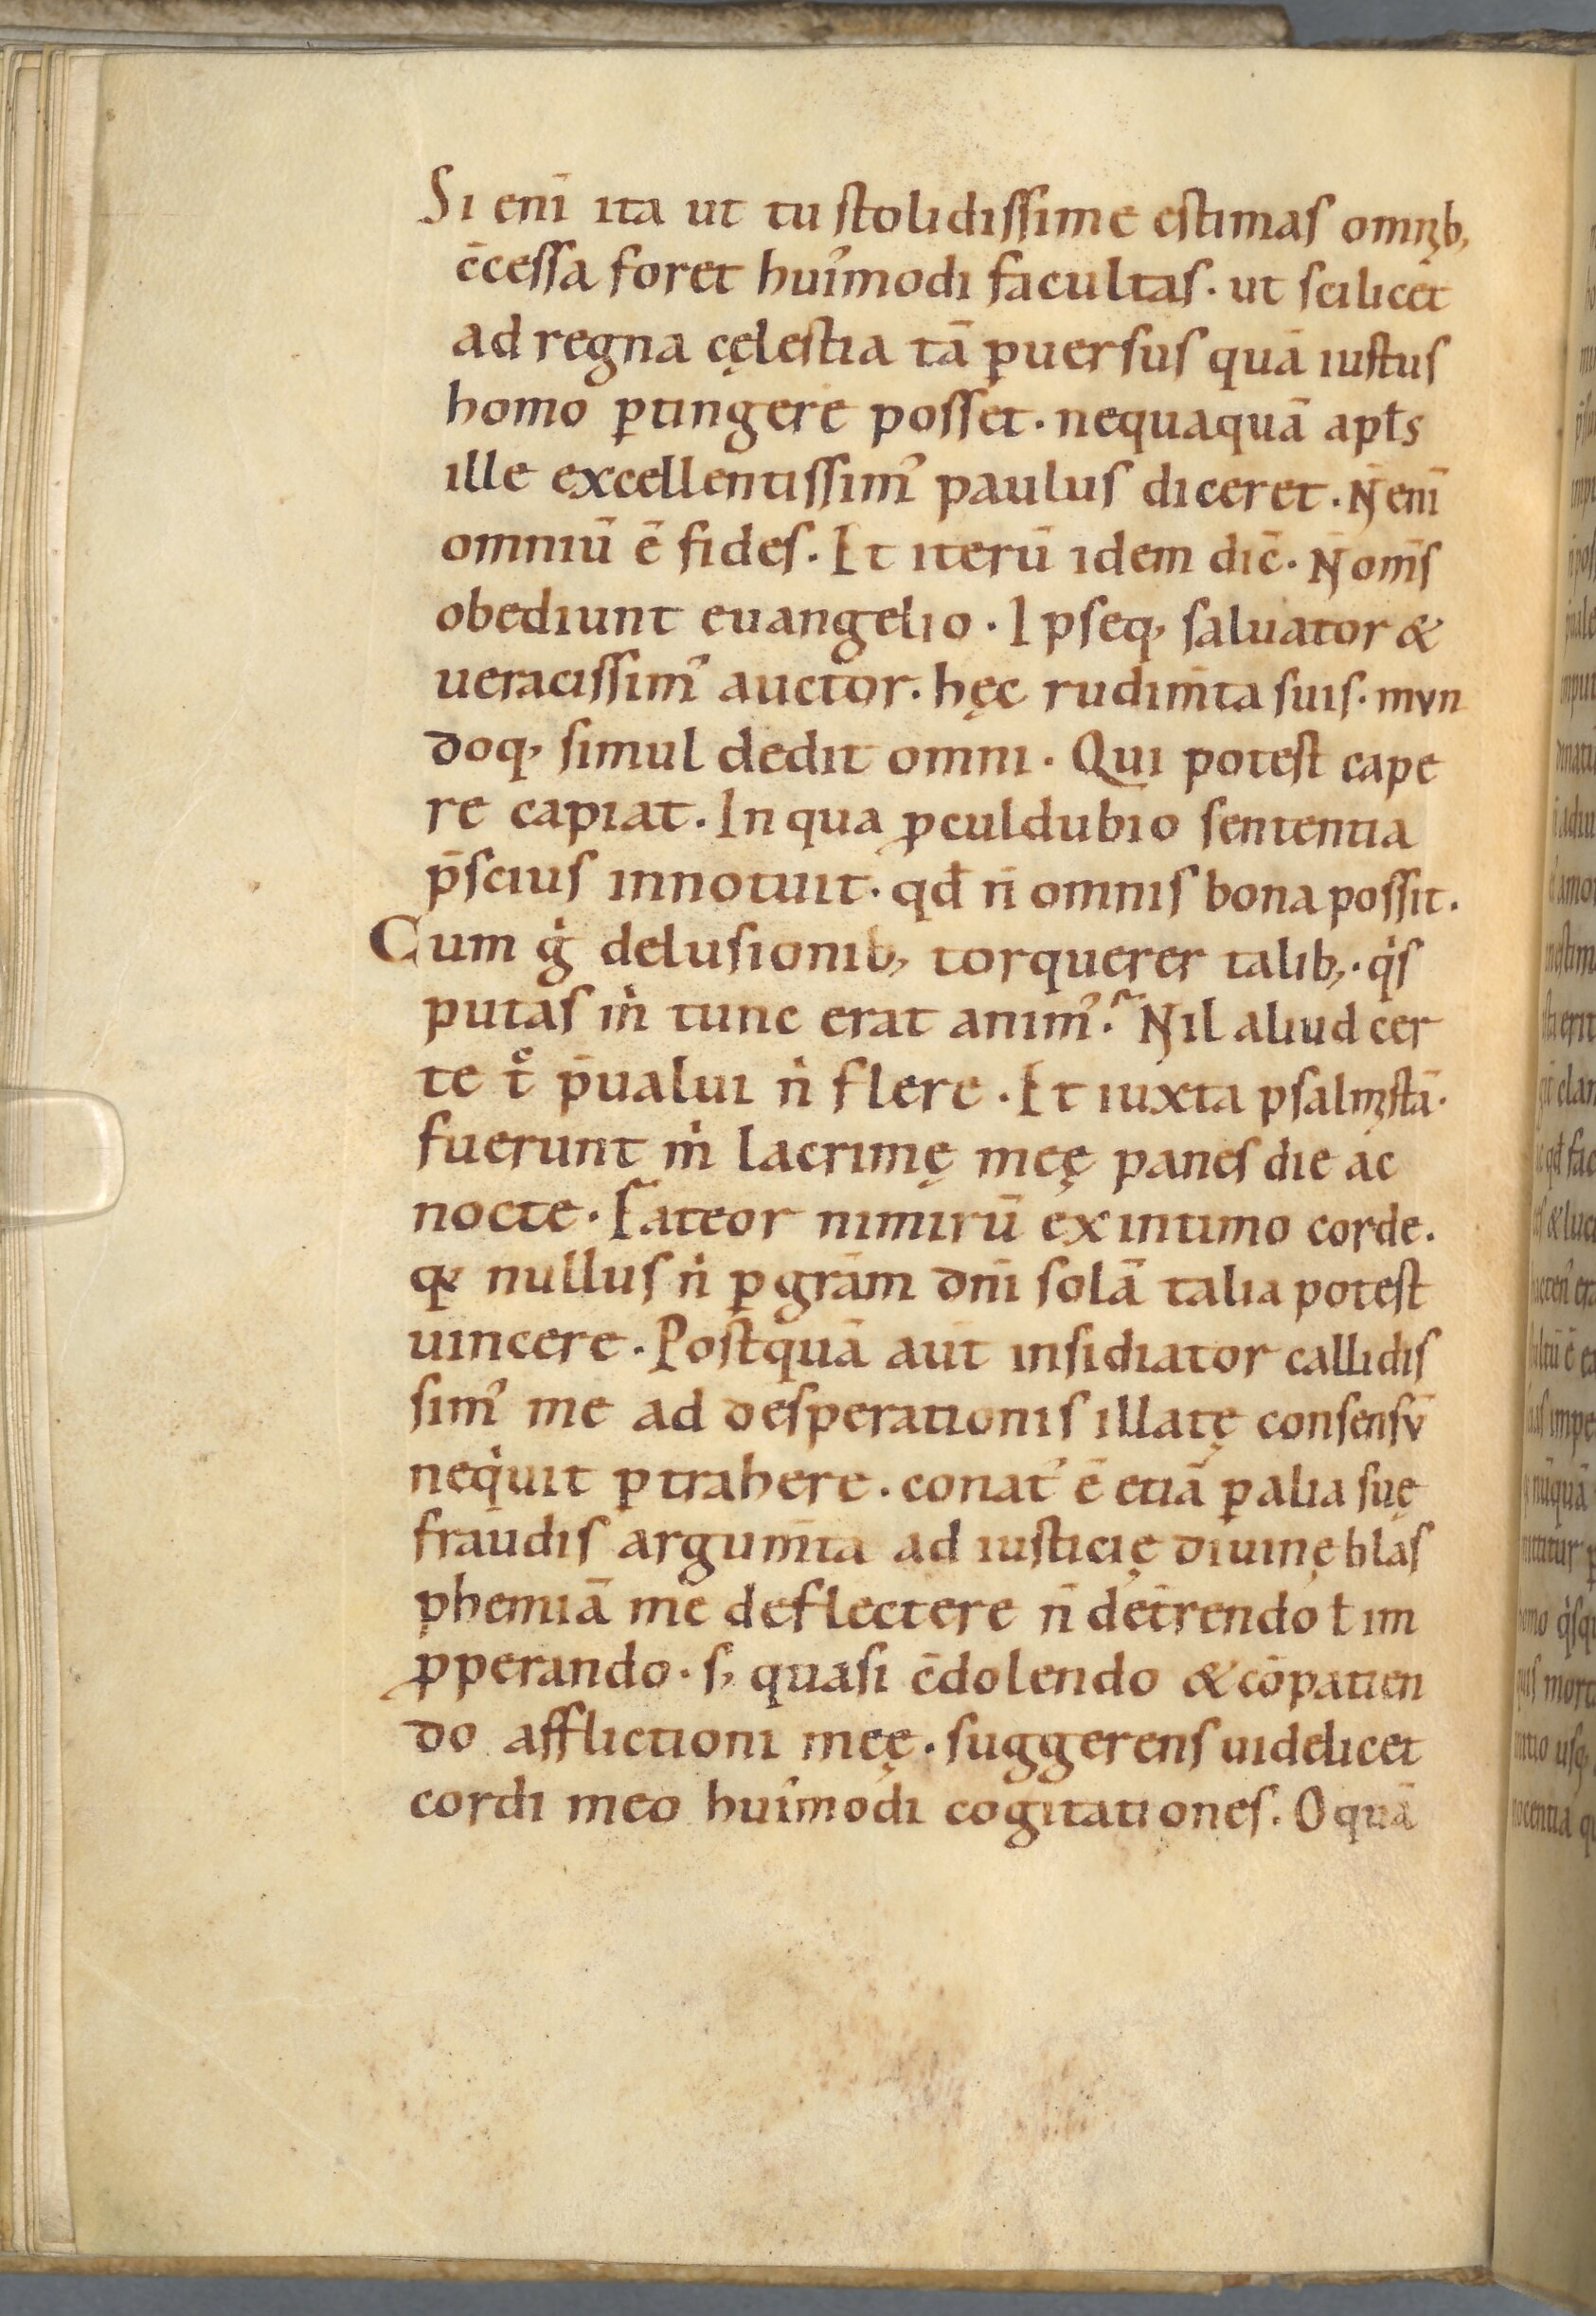 Si enī ita ut tu stolidissime estimas omnib;
c̄cessa foret hui᾽modi facultas · ut scilicet
ad regna cęlestia tā ꝑuersus quā iustus
homo ꝑtingere posset · nequaquā apl̄s
ille excellentissim᾽ paulus diceret · N̄ enī
omniū ē fides · Et iterū idem dic̄ · N̄ om̄s
obediunt euangelio · Ipseq; saluator &
ueracissim᾽ auctor · hęc rudim̄ta suis · mvn
doq; simul dedit omni · Qui potest cape
re capiat · In qua ꝓculdubio sententia
p̄scius innotuit · qđ n̄ omnis bona possit ·
Cum gͥ delusionib; torquerer talib; · qͥs
putas mͥ tunc erat anim᾽ · Nil aliud cer
te tͤ p̄ualui nͥ flere · Et iuxta psalmistā ·
fuerunt mͥ lacrimę meę panes die ac
nocte · Fateor nimirū ex intimo corde ·
qꝛ nullus nͥ ꝑ grām dn̄i solā talia potest
uincere · Postquā aut̄ insidiator callidis
sim᾽ me ad desperationis illatę consensv̄
neqͥuit ꝑtrahere · conat᾽ ē etiā ꝑ alia suę
fraudis argum̄ta ad iusticię diuinę blas
phemiā me deflectere n̄ det̄rendo ł im
ꝓperando · s; quasi c̄dolendo & cōpatien
do afflictioni meę · suggerens uidelicet
cordi meo hui᾽modi cogitationes · O quā